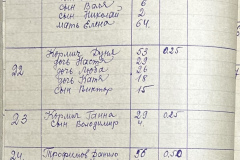 сын Валя 6
сын Николай 2
мать Елена 64
22 Кормич Дуня 53 0.25
дочь Настя 29
дочь Люба 26
дочь Катя 18
сын Виктор 15
23 Кормич Ганна 29 0.25
сын Володимир 4
24 Трофимов Данило 56 0,50